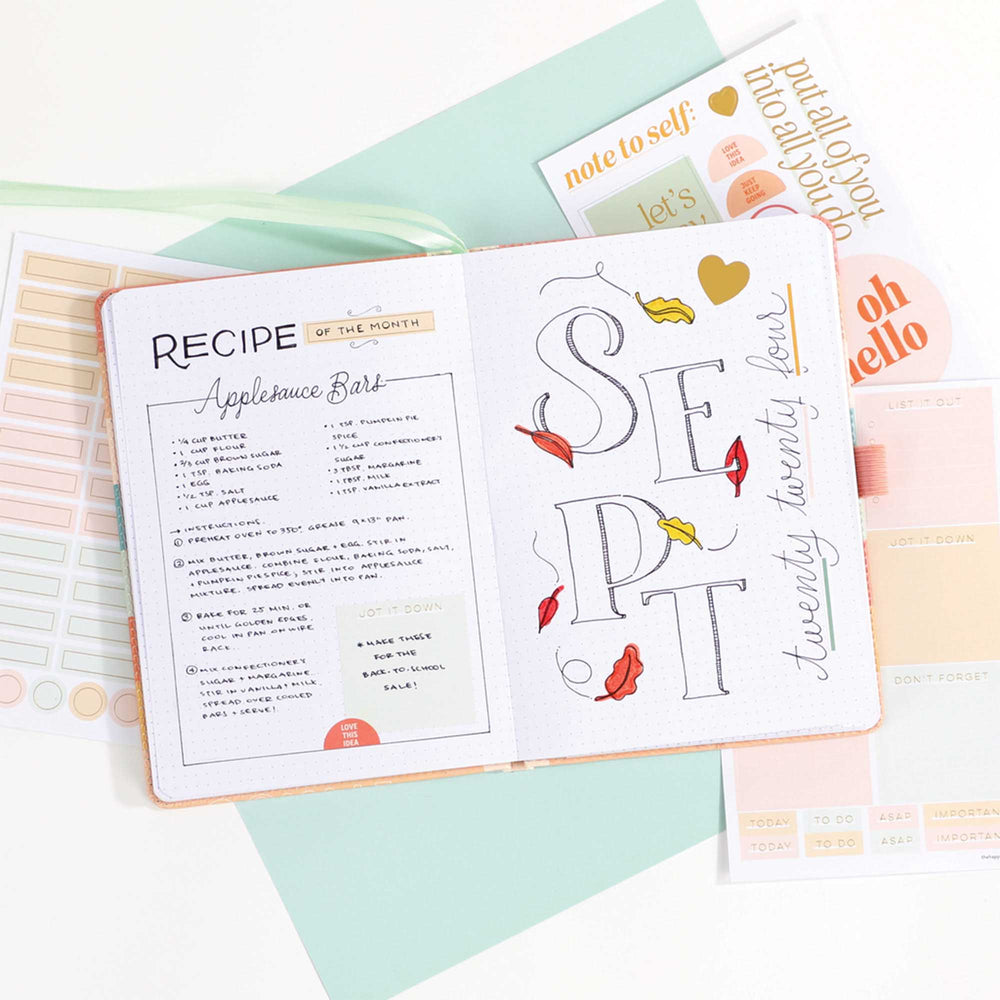 RECIPE OF THE MONTH
Applesauce Bars
• 1/4 CUP BUTTER
• 1 CUP FLOUR
• 2/3 CUP BROWN SUGAR
• 1 TSP. BAKING SODA
• 1 EGG
• 1/2 TSP. SALT
• 1 CUP APPLESAUCE
• 1 TSP. PUMPKIN PIE
SPICE
• 1 1/2 CUP CONFECTIONERY
SUGAR
• 3 TBSP. MARGARINE
• 1 TBSP. MILK
• 1 TSP. VANILLA EXTRACT
→ INSTRUCTIONS.
① PREHEAT OVEN TO 350°. GREASE 9x13" PAN.
② MIX BUTTER, BROWN SUGAR + EGG. STIR IN
APPLESAUCE. COMBINE FLOUR, BAKING SODA, SALT,
+ PUMPKIN PIE SPICE; STIR INTO APPLESAUCE
MIXTURE. SPREAD EVENLY INTO PAN.
③ BAKE FOR 25 MIN. OR
UNTIL GOLDEN EDGES.
COOL IN PAN ON WIRE
RACK.
④ MIX CONFECTIONERY
SUGAR + MARGARINE.
STIR IN VANILLA + MILK.
SPREAD OVER COOLED
BARS + SERVE!
JOT IT DOWN
* MAKE THESE
FOR THE
BACK-TO-SCHOOL
SALE!
LOVE
THIS
IDEA
SE
PT
twenty twenty four
note to self:
LOVE
THIS
IDEA
JUST
KEEP
GOING
let's
put all of you
into all you do
oh
hello
LIST IT OUT
JOT IT DOWN
DON'T FORGET
TODAY
TO DO
ASAP
IMPORTAN
TODAY
TO DO
ASAP
IMPORTAN